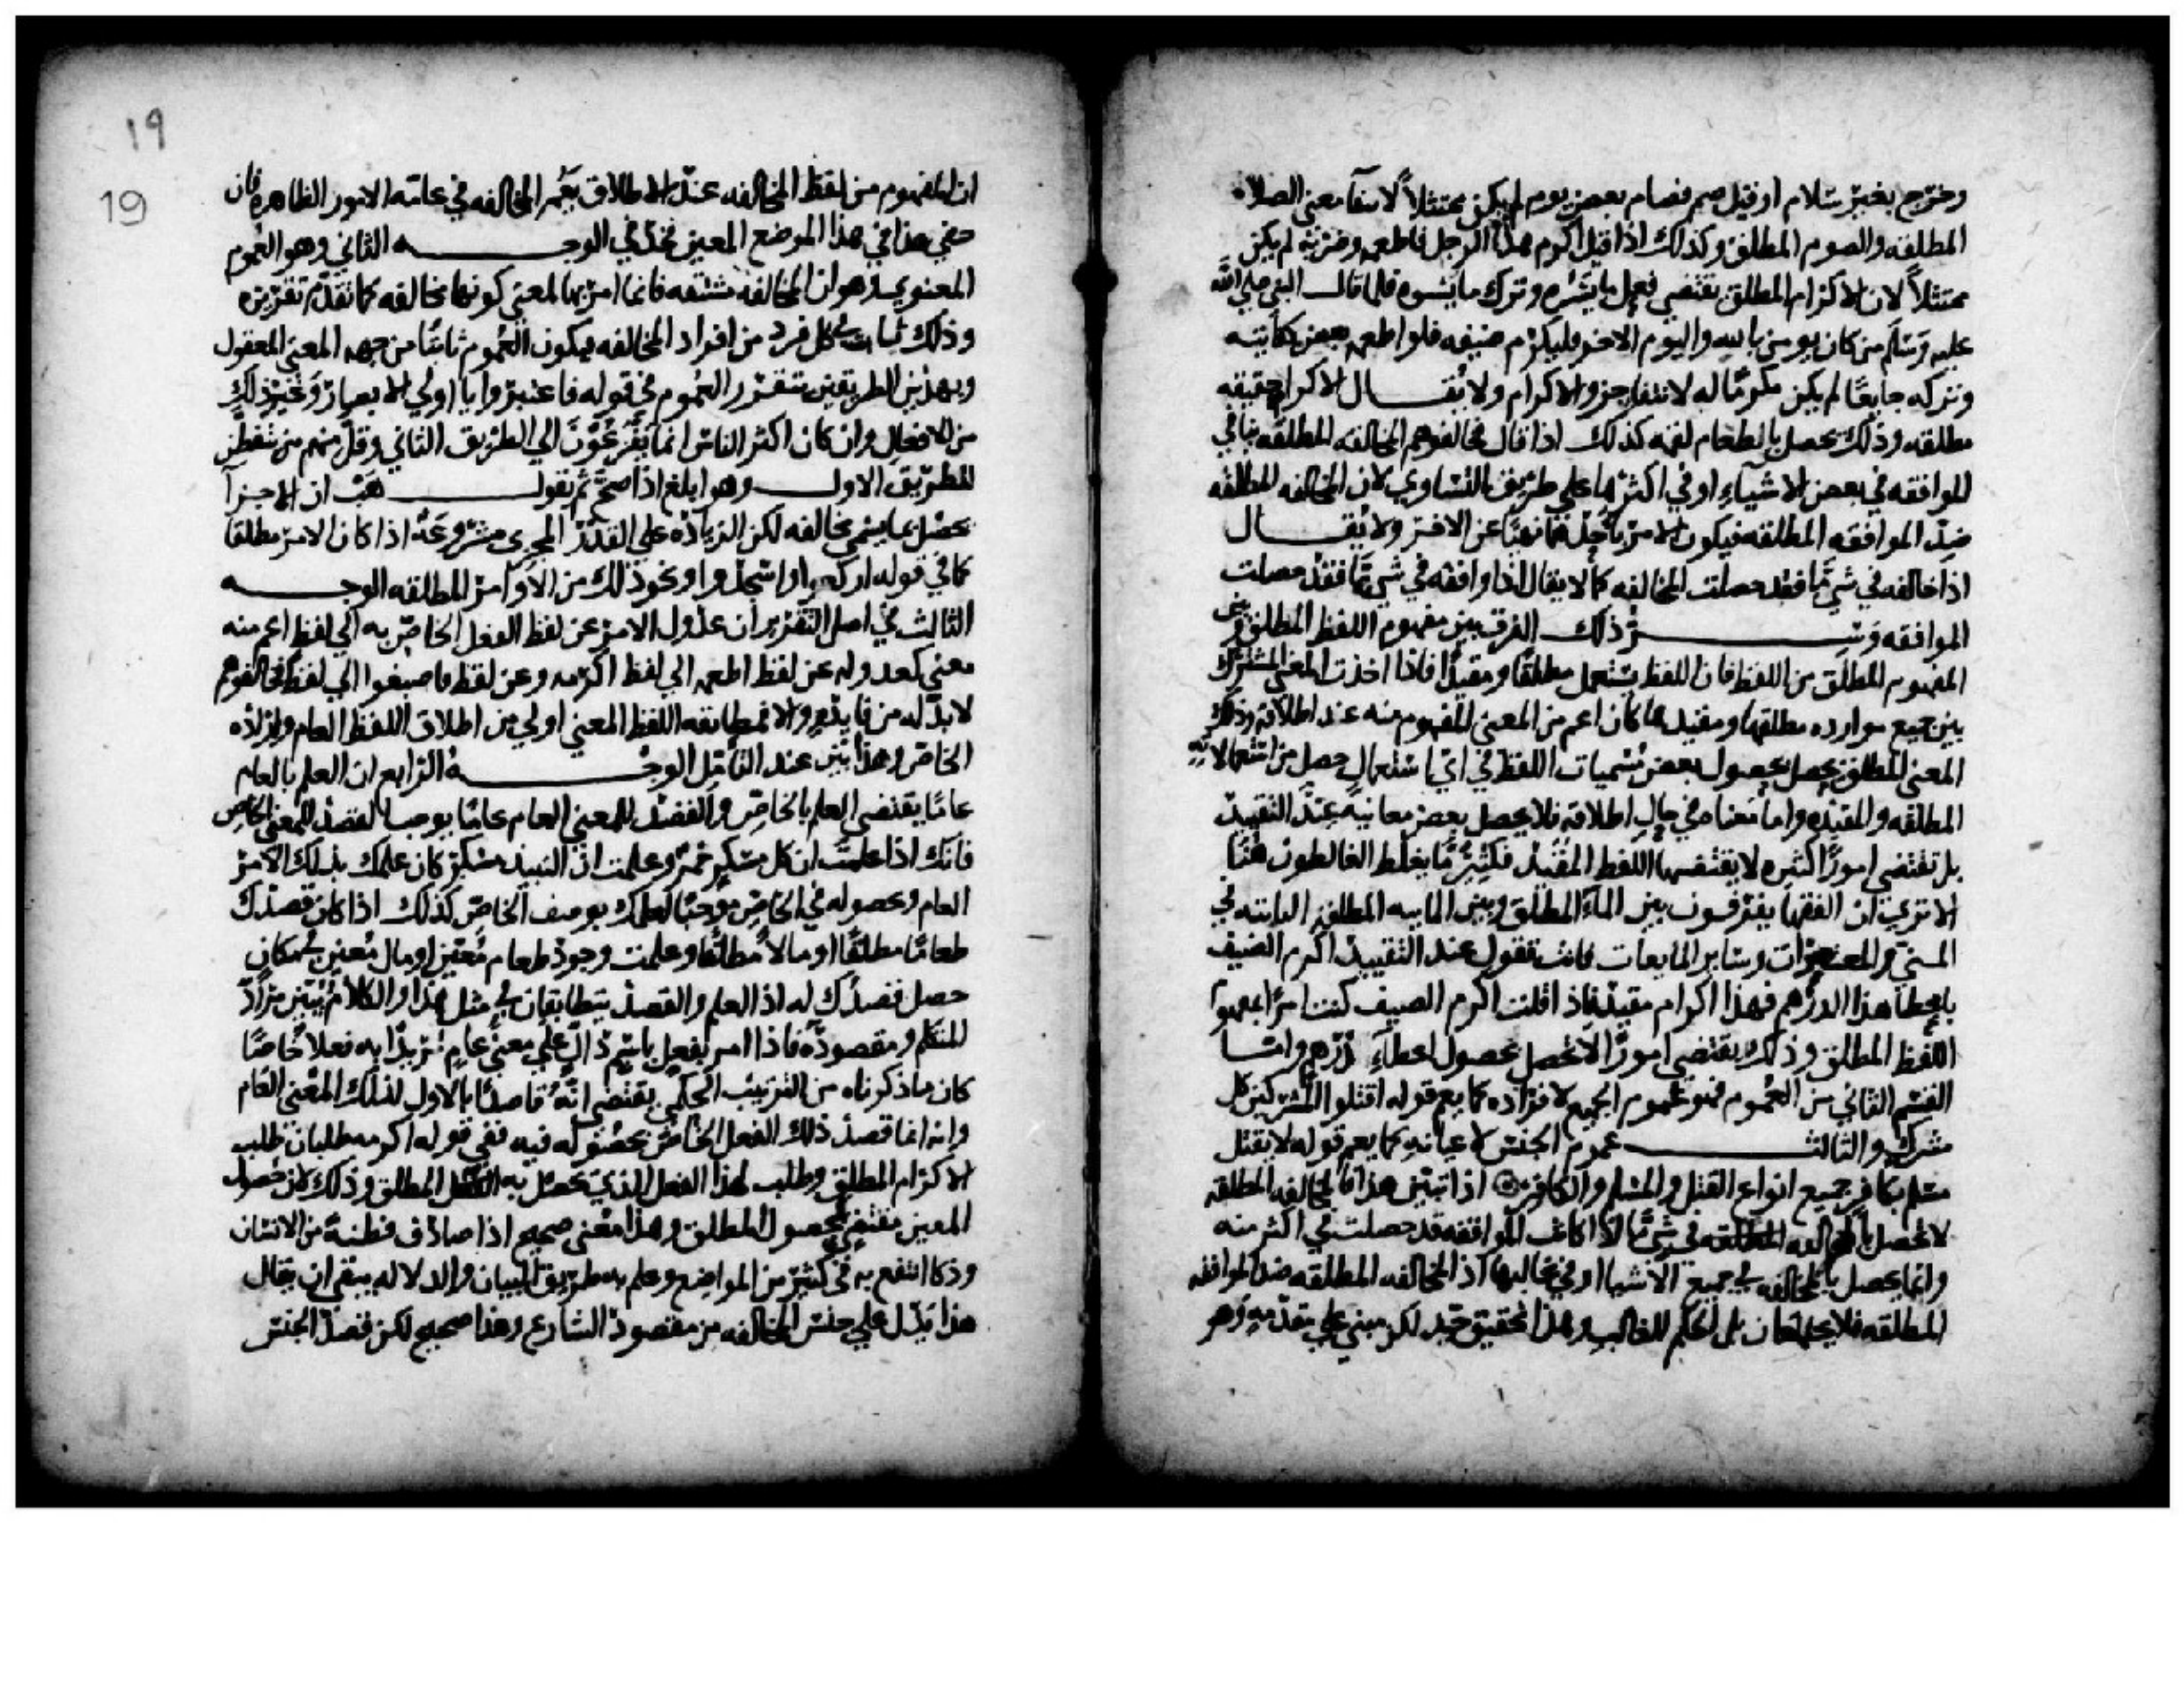 وخرج بغير سلام او قيل صم فصام بعض يوم لم يكن ممتثلاً لانتفآ معنى الصلاه
المطلقه والصوم المطلق وكذلك اذا قيل اكرم هذا الرجل فاطعمه وضربه لم يكن
ممتثلاً لان الاكرام المطلق يقتضي فعل ما يسره وترك ما يسوه فلما قال النبي صلى الله
عليه وسلم من كان يومن بالله واليوم الاخر فليكرم ضيفه فلو اطعمه بعض كفايته
وتركه جايعًا لم يكن مكرمًا له لانتفا جزو الاكرام ولا يقال الاكرام حقيقه
مطلقه وذلك يحصل باطعام لقمه كذلك اذا قال خالفوهم المخالفه المطلقه تنافي
الموافقه في بعض الاشياء او في اكثرها على طريق التساوي لان المخالفه المطلقه
ضد الموافقه المطلقه فيكون الامر باحدهما نهيًا عن الاخر ولا يقال
اذا خالفه في شي ما فقد حصلت المخالفه كما لا يقال اذا وافقه في شي ما فقد حصلت
الموافقه وسر ذلك الفرق بين مفهوم اللفظ المطلق وبين
المفهوم المطلق من اللفظ فان اللفظ يستعمل مطلقا ومقيدًا فاذا اخذت المعنى المشترك
بين جميع موارده مطلقها ومقيدها كان اعم من المعنى المفهوم منه عند اطلاقه وذلك
المعنى المطلق يحصل بحصول بعض مسميات اللفظ في اي استعمال حصل من استعمالاته
المطلقه والمقيده واما معناه في حال اطلاقه فلا يحصل ببعض معانيه عند التقييد
بل تقتضي امورًا كثيره لا يقتضيها اللفظ المقيد فكثيرٌ ما يغلط الغالطون هنا
الا ترى ان الفقها يفرقون بين الماء المطلق وبين المايه المطلقه الثابته في
المني والمتغيرات وساير المايعات فانت تقول عند التقييد اكرم الضيف
باعطا هذا الدرهم فهذا اكرام مقيد فاذا قلت اكرم الضيف كنت امرًا بمفهوم
اللفظ المطلق وذلك يقتضي امورًا لا تحصل بحصول اعطاء درهم واما
القسم الثاني من العموم فهو عموم الجميع لافراده كما يعم قوله اقتلوا المشركين كل
مشرك والثالث عموم الجنس لاعيانه كما يعم قوله لا يقتل
مسلم بكافر جميع انواع القتل والمسلم والكافر اذا تبين هذا فالمخالفه المطلقه
لا تحصل بالمخالفه في شي ما اذا كانت الموافقه قد حصلت في اكثر منه
وانما يحصل بالمخالفه في جميع الاشيا او في غالبها اذ المخالفه المطلقه ضد الموافقه
المطلقه فلا يجتمعان بل الحكم للغالب وهذا تحقيق جيد لكن مبني على مقدمه وهو
١٩
19
ان المفهوم من لفظ المخالفه عند الاطلاق يعم المخالفه في عامة الامور الظاهره فان
خفي هذا في هذا الموضع المعين فخذ في الوجه الثاني وهو العموم
المعنوي وهو ان المخالفه مشتقه فانما امر بها لمعنى كونها مخالفه كما تقدم تقريره
وذلك ثابت في كل فرد من افراد المخالفه فيكون العموم ثابتا من جهه المعنى المعقول
وبهذين الطريقين يتقرر العموم في قوله فاعتبروا يا اولي الابصار وغير ذلك
من الافعال وان كان اكثر الناس انما يفزعون الي الطريق الثاني وقل منهم من يتفطن
للطريق الاول وهو ابلغ اذا صح ثم نقول هب ان الاجزآ
يحصل بما يسمى مخالفه لكن الزياده على القدر المجزي مشروعة اذا كان الامر مطلقا
كما في قوله اركعوا واسجدوا ونحو ذلك من الاوامر المطلقه الوجه
الثالث في اصل التقرير ان عدول الامر عن لفظ الفعل الخاص به الى لفظ اعم منه
معنى كعدوله عن لفظ اطعمه الى لفظ اكرمه وعن لفظ فاصبغوا الي لفظ فخالفوهم
لا بد له من فايده والا فمطابقه اللفظ المعنى اولى من اطلاق اللفظ العام وارادة
الخاص وهذا بين عند التامل الوجه الرابع ان العلم بالعام
عامًا يقتضي العلم بالخاص والقصد للمعنى العام عامًا يوجب القصد للمعنى الخاص
فانك اذا علمت ان كل مسكر خمر وعلمت ان النبيذ مسكر كان علمك بذلك الامر
العام وبحصوله في الخاص موجبًا لعلمك بوصف الخاص كذلك اذا كان قصدك
طعامًا مطلقًا او مالاً مطلقا وعلمت وجود طعام معين او مال معين في مكان
حصل قصدك له اذ العلم والقصد يتطابقان في مثل هذا والكلام يبين مراد
المتكلم ومقصوده فاذا امر بفعل باسم دال على معنى عام مريدًا به فعلا خاصًا
كان ما ذكرناه من الترتيب الحكمي يقتضي انه قاصد بالاول لذلك المعنى العام
وانه انما قصد ذلك الفعل الخاص لحصوله فيه ففي قوله اكرمه طلبان طلب
الاكرام المطلق وطلب لهذا الفعل الذي يحصل به الفعل المطلق وذلك لان حصول
المعين مقتضٍ لحصول المطلق وهذا معنى صحيح اذا صادف فطنة من الانسان
وذكا انتفع به في كثير من المواضع وعلم به طريق البيان والدلاله بقي ان يقال
هذا يدل علي جنس المخالفه من مقصود الشارع وهذا صحيح لكن قصد الجنس